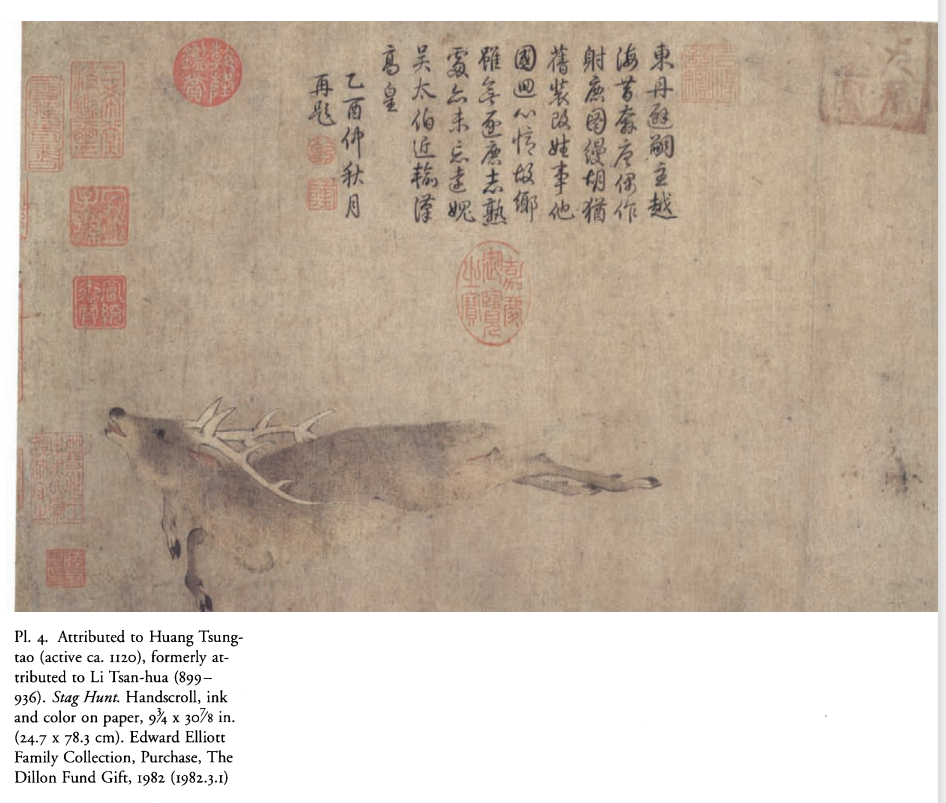 東丹避嗣主越
海昔奔唐偶作
射鹿圖縵胡猶
舊裝改姓事他
國心故鄉
雖無逐鹿志熟
處亦未忘遠媿
吳太伯近輸漢
高皇
乙酉仲秋月
再題
乾隆鑑賞
嘉慶御覽之寶
三希堂精鑑璽
宜子孫
Pl. 4. Attributed to Huang Tsung-
tao (active ca. 1120), formerly at-
tributed to Li Tsan-hua (899–
936). Stag Hunt. Handscroll, ink
and color on paper, 9¾ x 30⅞ in.
(24.7 x 78.3 cm). Edward Elliott
Family Collection, Purchase, The
Dillon Fund Gift, 1982 (1982.3.1)